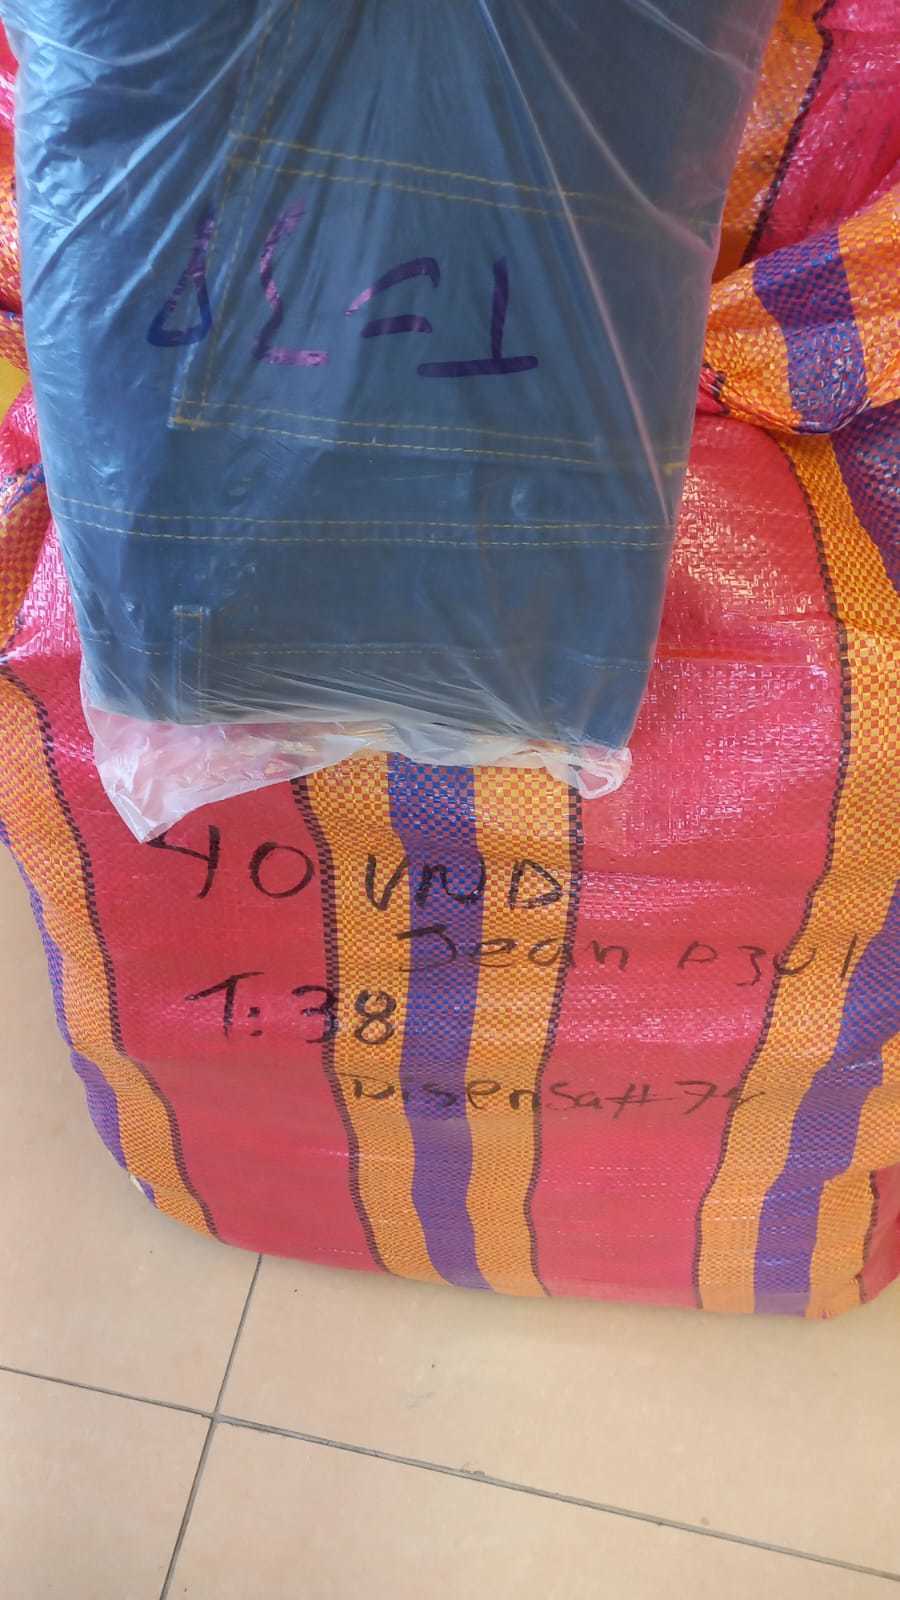 T=38
40 UND
Jean azul
T: 38
Disensa#